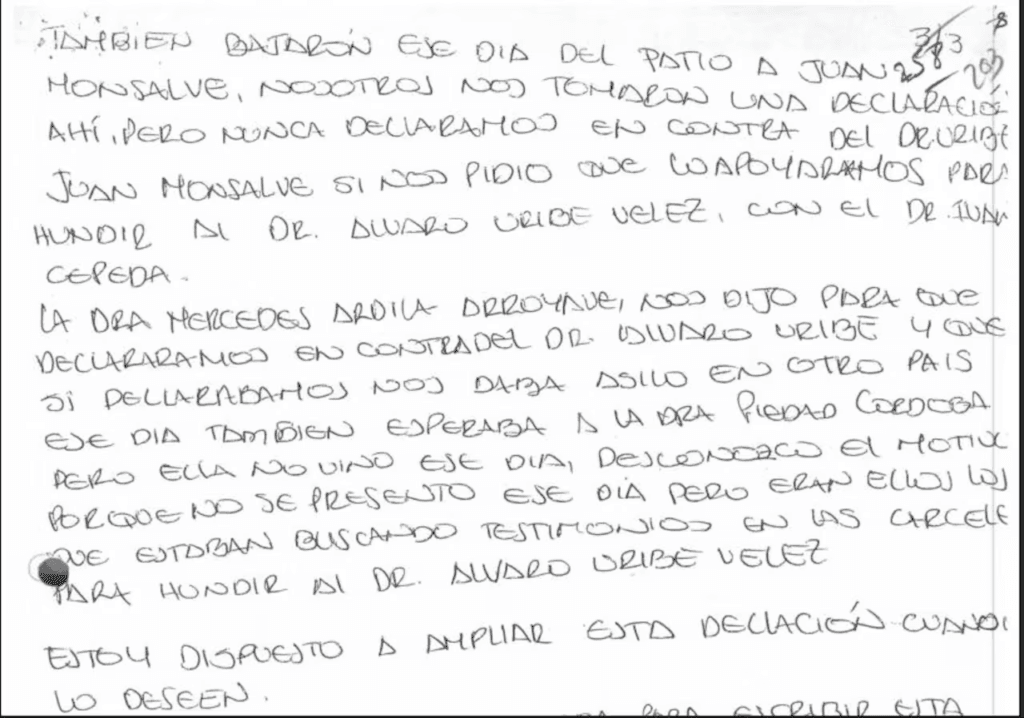 8
313
258
202
TAMBIEN BAJARON ESE DIA DEL PATIO A JUAN
MONSALVE, NOSOTROS NOS TOMARON UNA DECLARACIÓ
AHÍ, PERO NUNCA DECLARAMOS EN CONTRA DEL DR. URIBE
JUAN MONSALVE SI NOS PIDIO QUE LO APOYARAMOS PARA
HUNDIR AL DR. ALVARO URIBE VELEZ, CON EL DR. IVAN
CEPEDA.
LA DRA MERCEDES ARDILA ARROYAVE, NOS DIJO PARA QUE
DECLARARAMOS EN CONTRA DEL DR. ALVARO URIBE Y QUE
SI DECLARABAMOS NOS DABA ASILO EN OTRO PAIS
ESE DIA TAMBIEN ESPERABA A LA DRA PIEDAD CORDOBA
PERO ELLA NO VINO ESE DIA, DESCONOZCO EL MOTIVO
PORQUE NO SE PRESENTO ESE DIA PERO ERAN ELLOS LOS
QUE ESTABAN BUSCANDO TESTIMONIOS EN LAS CARCELE
PARA HUNDIR AL DR. ALVARO URIBE VELEZ
ESTOY DISPUESTO A AMPLIAR ESTA DECLACIÓN CUANDO
LO DESEEN.
PARA ESCRIBIR ESTA